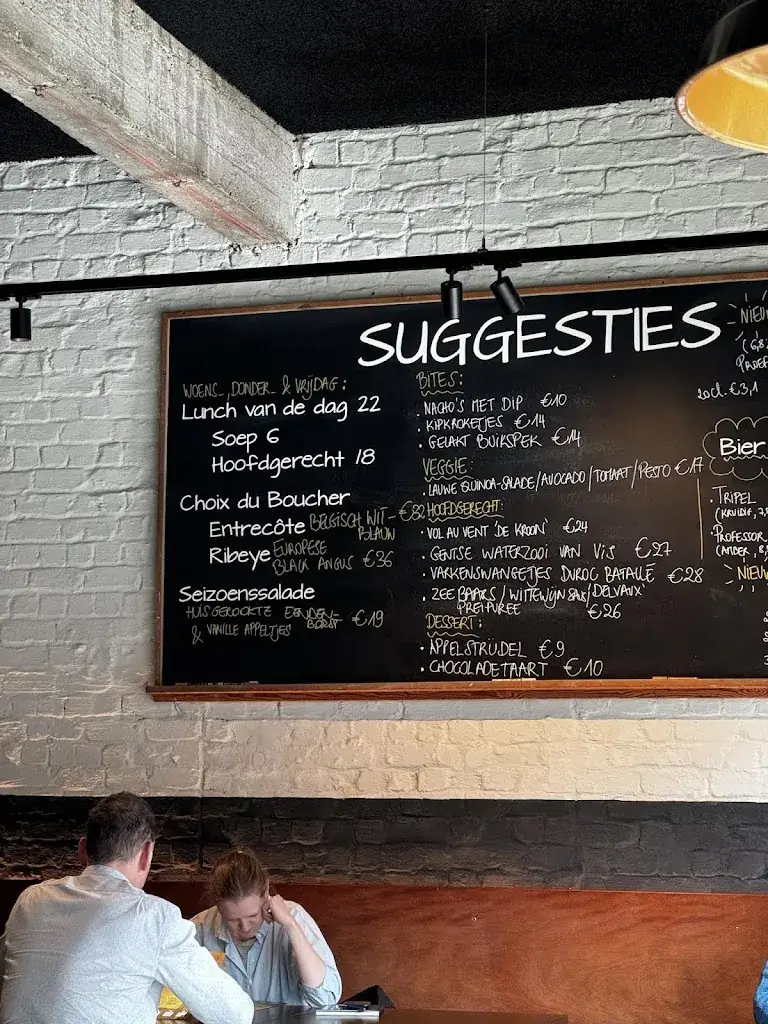 SUGGESTIES
WOENS_, DONDER_ & VRIJDAG:
Lunch van de dag 22
Soep 6
Hoofdgerecht 18
Choix du Boucher
Entrecôte BELGISCH WIT-BLAUW €32
Ribeye EUROPESE BLACK ANGUS €36
Seizoenssalade
HUISGEROOKTE EENDEN-BORST €19
& VANILLE APPELTJES
BITES:
• NACHO'S MET DIP €10
• KIPKROKETJES €14
• GELAKT BUIKSPEK €14
VEGGIE:
• LAUWE QUINOA-SALADE/AVOCADO/TOMAAT/PESTO €17
HOOFDGERECHT:
• VOL AU VENT 'DE KROON' €24
• GENTSE WATERZOOI VAN VIS €27
• VARKENSWANGETJES DUROC BATALLÉ €28
• ZEEBAARS/WITTEWIJNSAUS/'DELVAUX'
PREIPUREE €26
DESSERT:
• APPELSTRUDEL €9
• CHOCOLADETAART €10
20cl. €3,1
Bier
• TRIPEL
• PROFESSOR
(AMBER, 8,